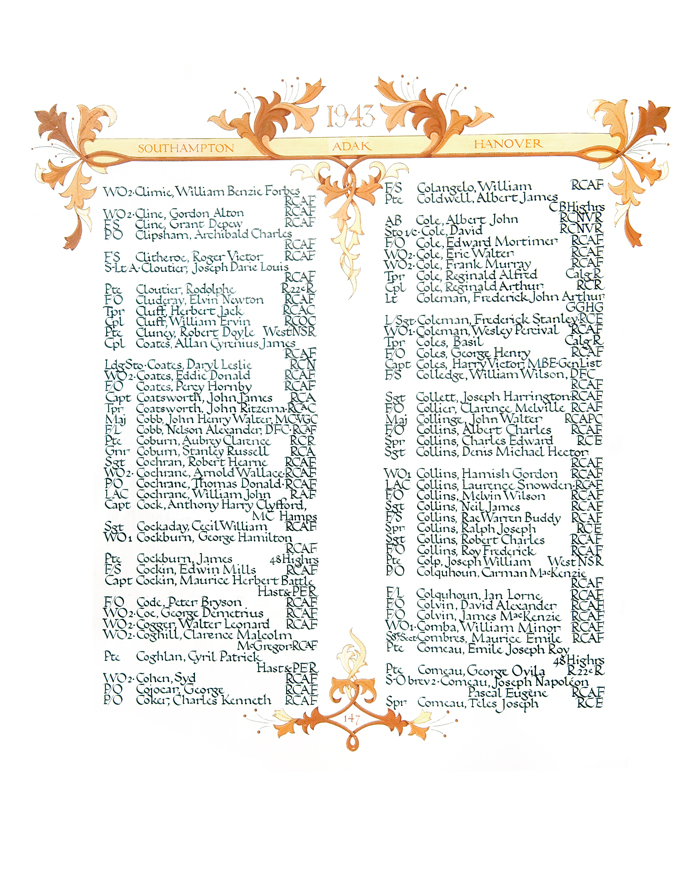 1943
SOUTHAMPTON ADAK HANOVER
WO2·Climie, William Benzie Forbes
RCAF
WO2·Cline, Gordon Alton RCAF
F/S Cline, Grant Depew RCAF
P/O Clipsham, Archibald Charles
RCAF
F/S Clitheroe, Roger Victor RCAF
S-Lt A·Cloutier, Joseph Darie Louis
RCAF
Pte Cloutier, Rodolphe R22eR
F/O Cluderay, Elvin Newton RCAF
Tpr Cluff, Herbert Jack RCAC
Cpl Cluff, William Ervin RCOC
Pte Cluney, Robert Doyle WestNSR
Cpl Coates, Allan Cyrenius James
RCAF
LdgSto·Coates, Daryl Leslie RCN
WO2·Coates, Eddie Donald RCAF
F/O Coates, Percy Hornby RCAF
Capt Coatsworth, John James RCA
Tpr Coatsworth, John Ritzema·RCAC
Maj Cobb, John Henry Walter, MC·VGC
F/L Cobb, Nelson Alexander, DFC·RAF
Pte Coburn, Aubrey Clarence RCR
Gnr Coburn, Stanley Russell RCA
Sgt Cochran, Robert Hearne RCAF
WO2·Cochrane, Arnold Wallace·RCAF
P/O Cochrane, Thomas Donald·RCAF
LAC Cochrane, William John RAF
Capt Cock, Anthony Harry Clyfford,
MC Hamps
Sgt Cockaday, Cecil William RCAF
WO1 Cockburn, George Hamilton
RCAF
Pte Cockburn, James 48Highrs
F/S Cockin, Edwin Mills RCAF
Capt Cockin, Maurice Herbert Battle
Hast&PER
F/O Code, Peter Bryson RCAF
WO2·Coe, George Demetrius RCAF
WO2·Cogger, Walter Leonard RCAF
WO2·Coghill, Clarence Malcolm
McGregor·RCAF
Pte Coghlan, Cyril Patrick
Hast&PER
WO2·Cohen, Syd RCAF
P/O Cojocar, George RCAF
P/O Coker, Charles Kenneth RCAF
F/S Colangelo, William RCAF
Pte Coldwell, Albert James
CBHighrs
AB Cole, Albert John RCNVR
Sto1/c·Cole, David RCNVR
F/O Cole, Edward Mortimer RCAF
WO2·Cole, Eric Walter RCAF
WO2·Cole, Frank Murray RCAF
Tpr Cole, Reginald Alfred CalgR
Cpl Cole, Reginald Arthur RCR
Lt Coleman, Frederick John Arthur
GGHG
L/Sgt·Coleman, Frederick Stanley·RCE
WO1·Coleman, Wesley Percival RCAF
Tpr Coles, Basil CalgR
F/O Coles, George Henry RCAF
Capt Coles, Harry Victor, MBE·GenList
F/S Colledge, William Wilson, DFC
RCAF
Sgt Collett, Joseph Harrington·RCAF
F/O Collier, Clarence Melville RCAF
Maj Collinge, John Walter RCAPC
F/O Collins, Albert Charles RCAF
Spr Collins, Charles Edward RCE
Sgt Collins, Denis Michael Hector
RCAF
WO1 Collins, Hamish Gordon RCAF
LAC Collins, Laurence Snowden·RCAF
F/O Collins, Melvin Wilson RCAF
Sgt Collins, Neil James RCAF
F/S Collins, Rae Warren Buddy RCAF
Spr Collins, Ralph Joseph RCE
Sgt Collins, Robert Charles RCAF
F/O Collins, Roy Frederick RCAF
Pte Colp, Joseph William West NSR
P/O Colquhoun, Carman MacKenzie
RCAF
F/L Colquhoun, Ian Lorne RCAF
F/O Colvin, David Alexander RCAF
F/O Colvin, James MacKenzie RCAF
WO1·Comba, William Minor RCAF
Combres, Maurice Emile RCAF
Pte Comeau, Emile Joseph Roy
48Highrs
Pte Comeau, George Ovila R22eR
S·O·brev2·Comeau, Joseph Napoléon
Pascal Eugène RCAF
Spr Comeau, Teles Joseph RCE
147